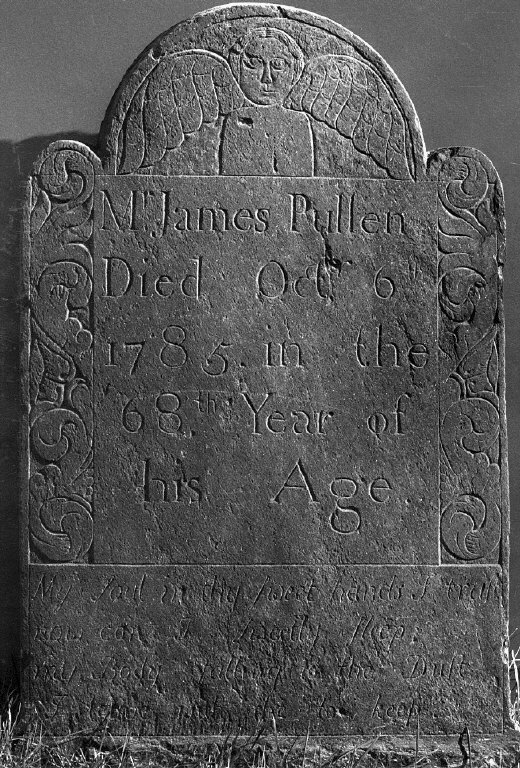 Mr. James Pullen
Died Octr. 6th
1785. in the
68.th Year of
his Age.
My Soul in thy sweet hands I trust
now can I sweetly sleep,
my Body falling to the Dust
I leave with the to keep